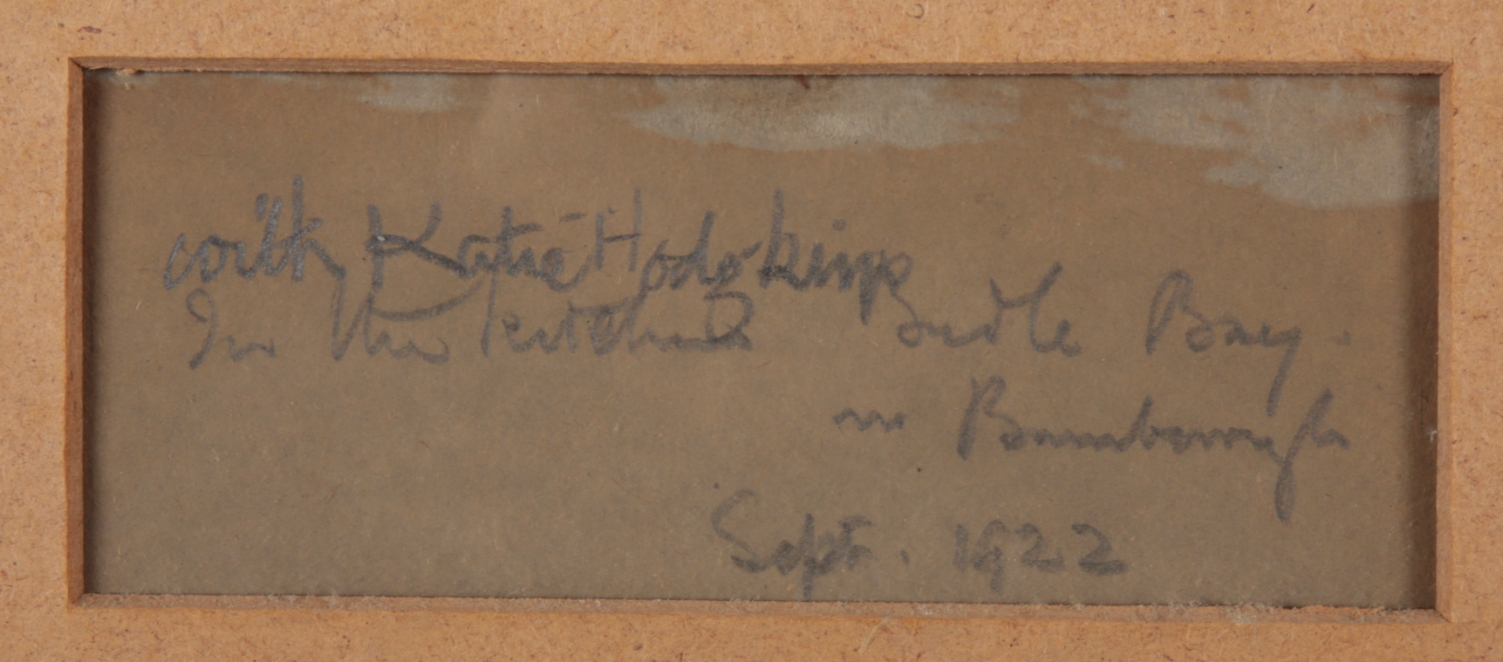 with Katie Hodgkins
In the kitchen Budle Bay.
nr Bamborough
Sept. 1922